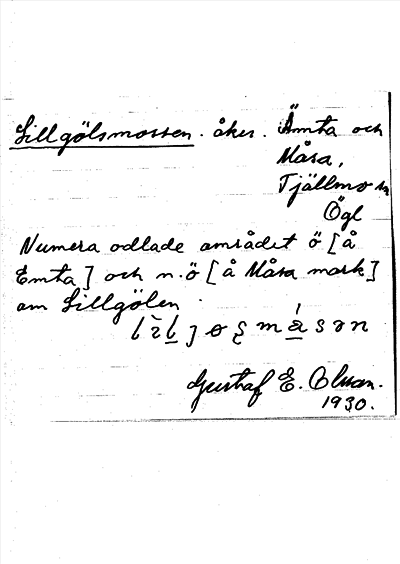 Lillgölsmossen. åker. Ämta och
Måsa,
Tjällmo sn
Ögl
Numera odlade området ö [å
Emta] och n.ö [å Måsa mark]
om Lillgölen.
Gustaf E. Olsson.
1930.